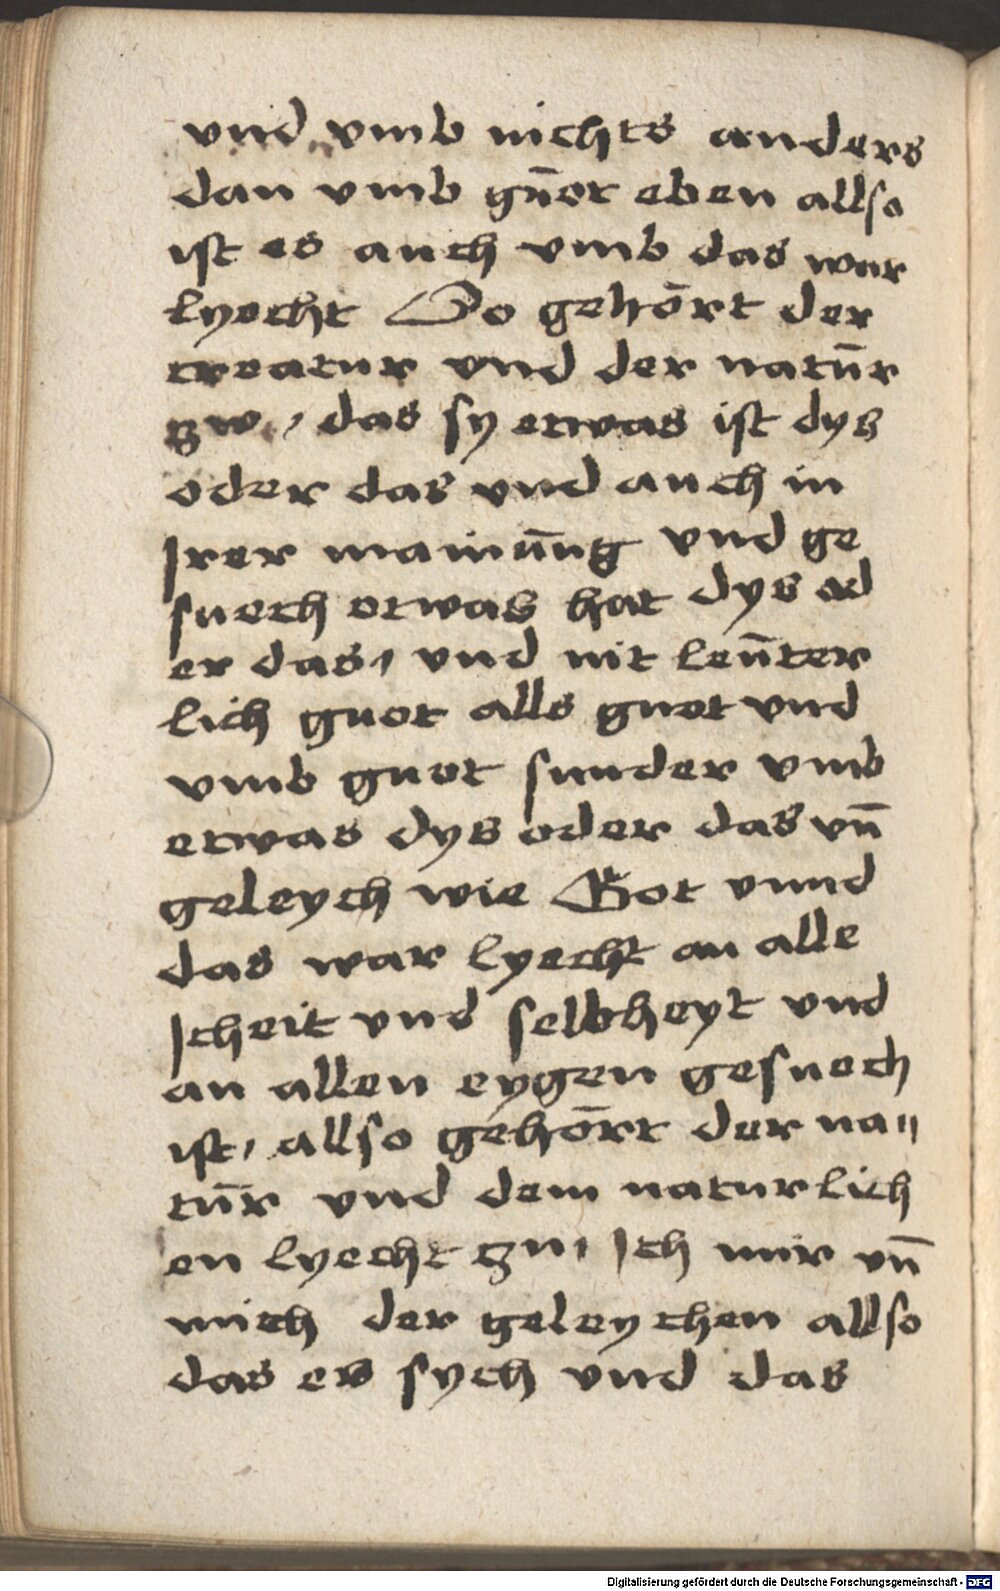 vnd vmb nichts anders
dan vmb gūot eben allso
ist es auch vmb das war
lyecht Do gehört der
creatur vnd der natūr
zw / das sy etwas ist dys
oder das vnd auch in
Irer mainūng vnd ge
suech etwas hat dys od
er das / vnd nit leūter
lich guot alls guot vnd
vmb guot sunder vmb
etwas dys oder das vn̄
geleych wie Got vnnd
das war lyecht an alle
Icheit vnd selbheyt vnd
an allen eygen gesuech
ist / allso gehört der na⸗
tūr vnd dem naturlich
en lyecht zu / Ich mir vn̄
mich der geleychen allso
das es sych vnd das
Digitalisierung gefördert durch die Deutsche Forschungsgemeinschaft - DFG